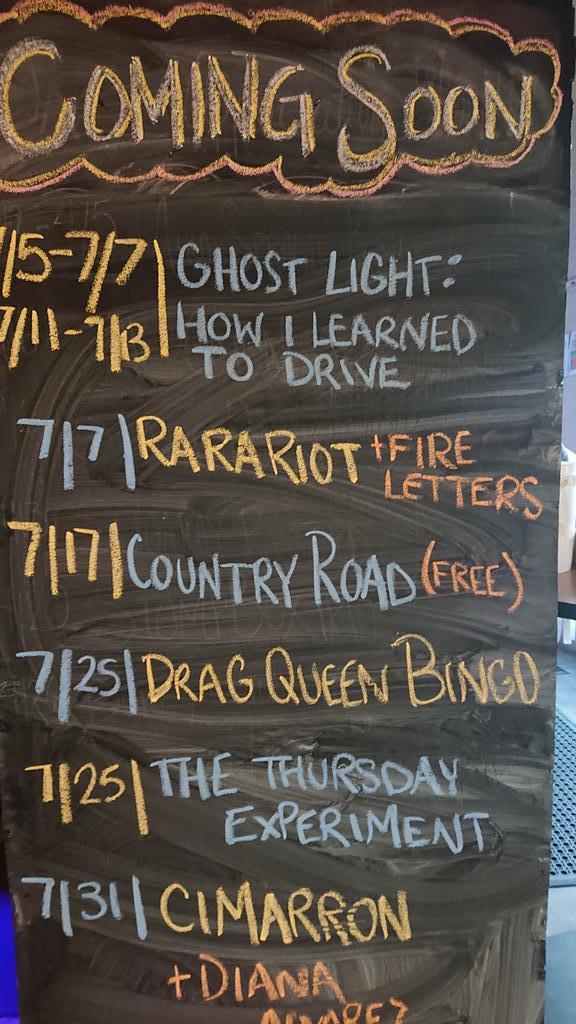 COMING SOON
7/5-7/7 | GHOST LIGHT:
7/11-7/13 | HOW I LEARNED
TO DRIVE
7/7 | RARARIOT +FIRE
LETTERS
7/17 | COUNTRY ROAD (FREE)
7/25 | DRAG QUEEN BINGO
7/25 | THE THURSDAY
EXPERIMENT
7/31 | CIMARRON
+DIANA
ALVAREZ